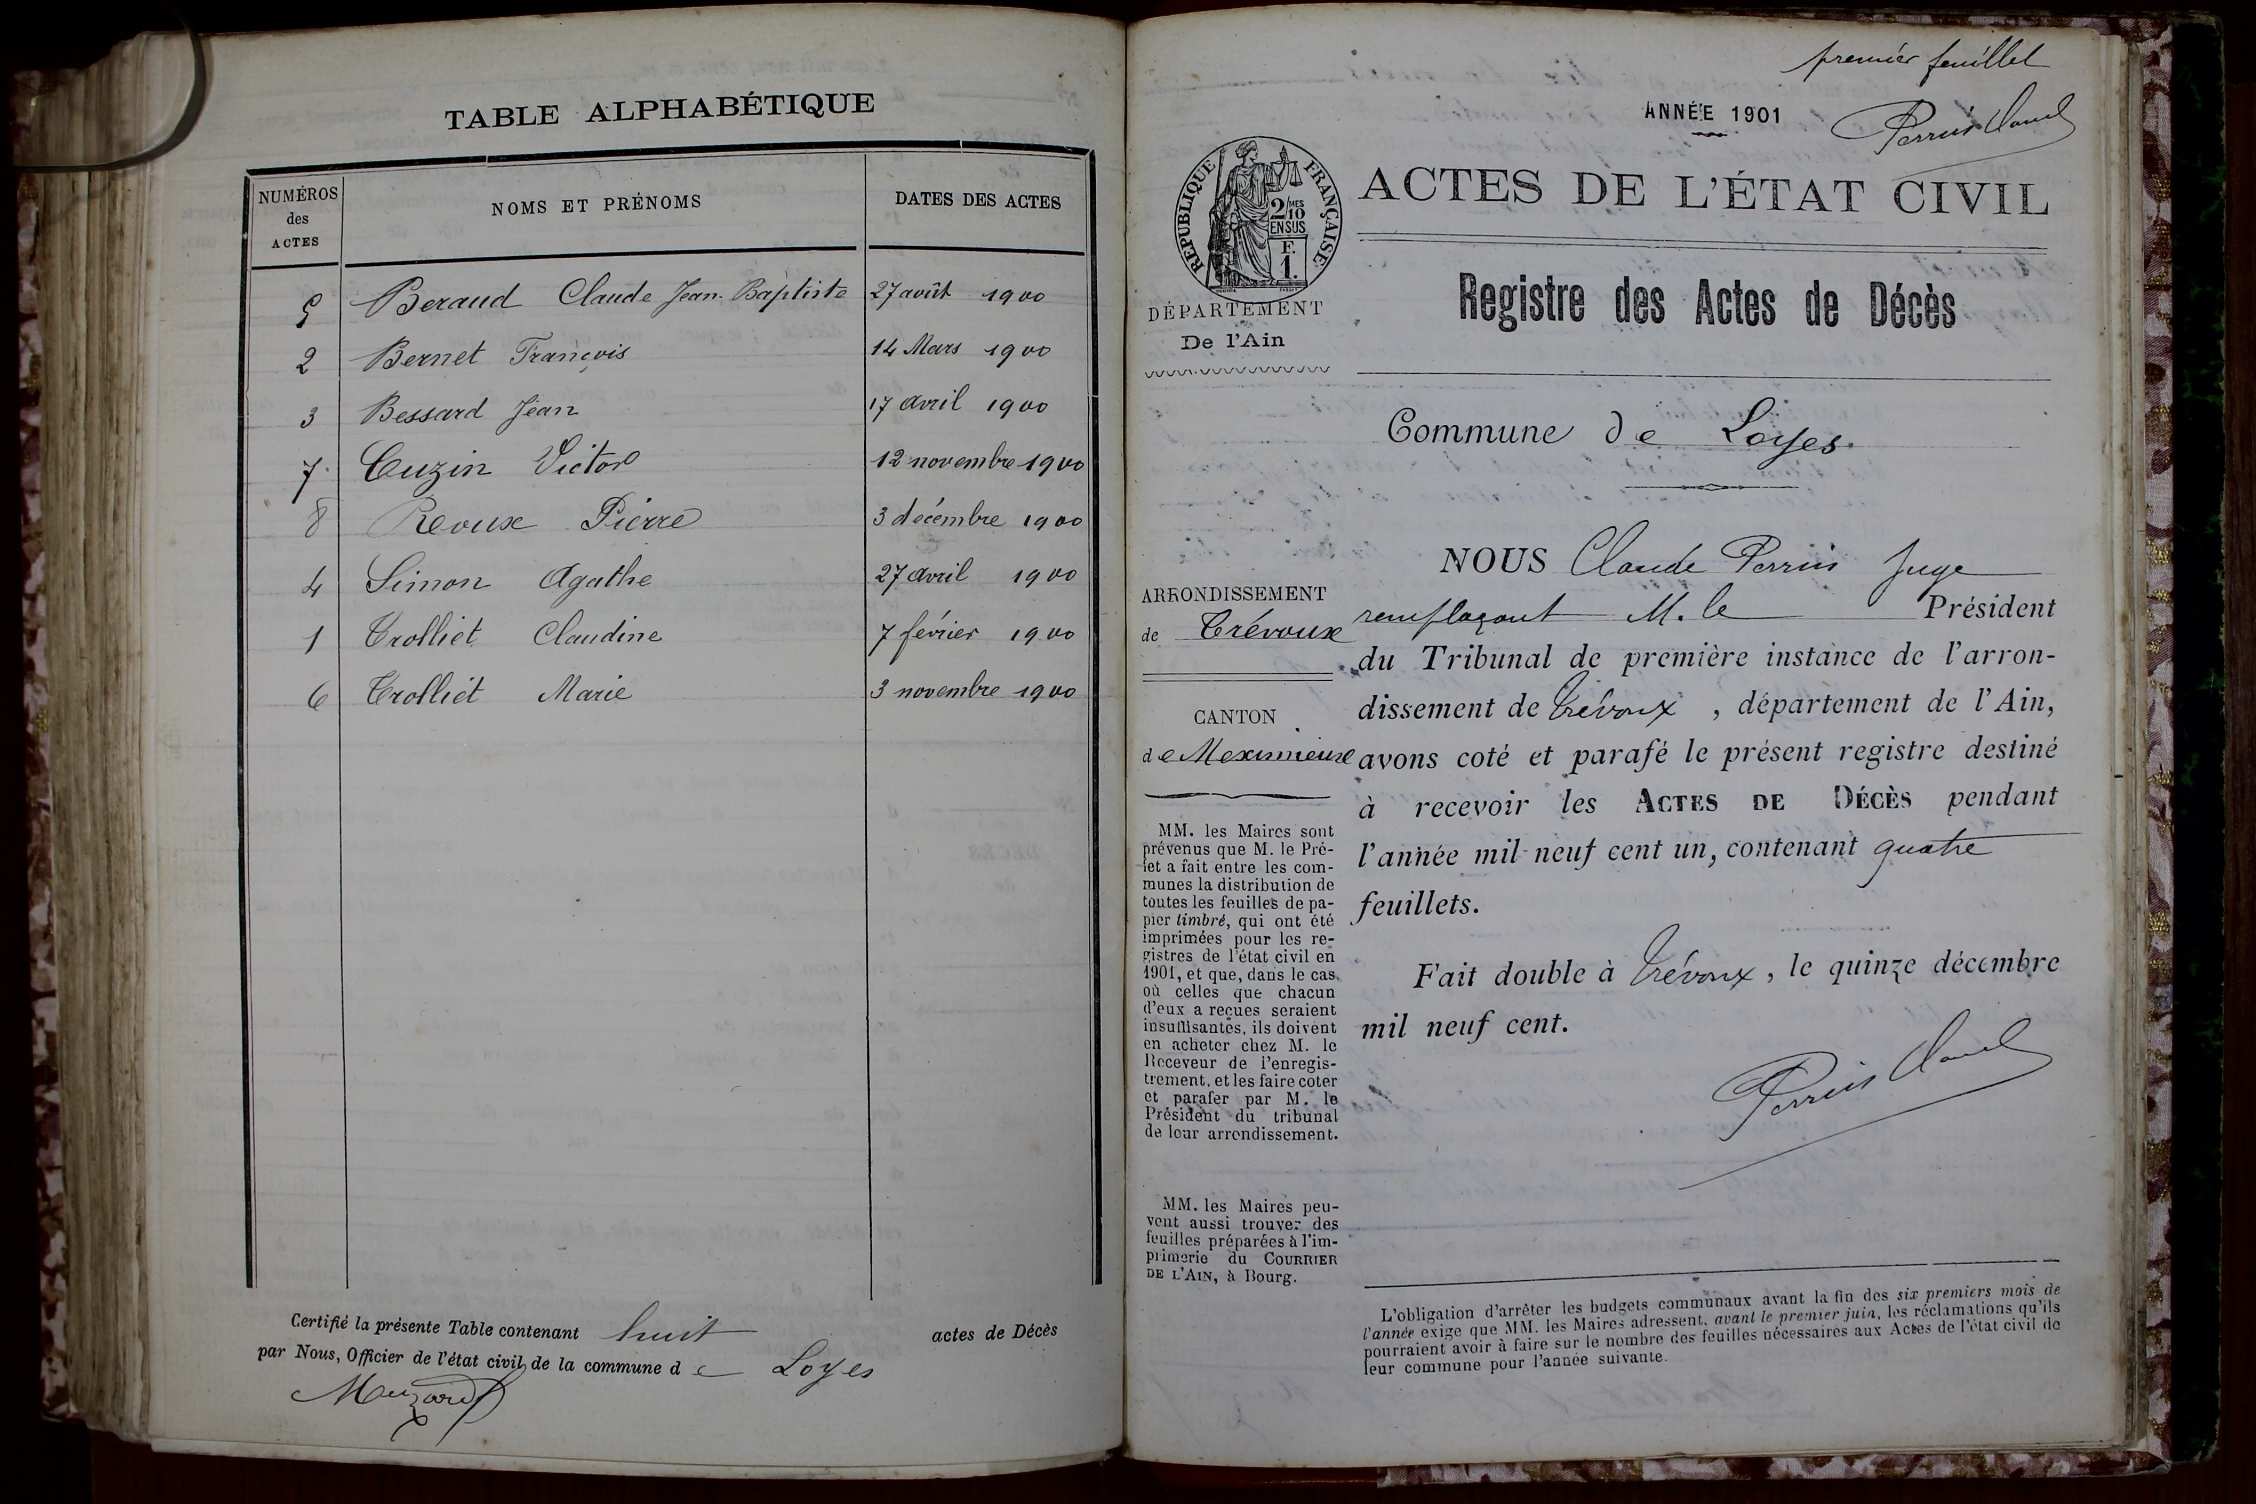 TABLE ALPHABÉTIQUE
NUMÉROS des ACTES
NOMS ET PRÉNOMS
DATES DES ACTES
5 Beraud Claude Jean-Baptiste 27 août 1900
2 Bernet François 14 Mars 1900
3 Bessard Jean 17 avril 1900
7 Cuzin Victor 12 novembre 1900
8 Revux Pierre 3 décembre 1900
4 Simon Agathe 27 avril 1900
1 Trolliet Claudine 7 février 1900
6 Trolliet Marie 3 novembre 1900
Certifié la présente Table contenant huit actes de Décès
par Nous, Officier de l'état civil de la commune de Loyes
premier feuillet
ANNÉE 1901
Perrin Claude
RÉPUBLIQUE FRANÇAISE
2/10 MES
EN SUS
F.
1.
ACTES DE L'ÉTAT CIVIL
Registre des Actes de Décès
DÉPARTEMENT
De l'Ain
Commune de Loyes.
ARRONDISSEMENT
de Trévoux
CANTON
de Meximieux
MM. les Maires sont
prévenus que M. le Pré-
fet a fait entre les com-
munes la distribution de
toutes les feuilles de pa-
pier timbré, qui ont été
imprimées pour les re-
gistres de l'état civil en
1901, et que, dans le cas
où celles que chacun
d'eux a reçues seraient
insuffisantes, ils doivent
en acheter chez M. le
Receveur de l'enregis-
trement, et les faire coter
et parafer par M. le
Président du tribunal
de leur arrondissement.
MM. les Maires peu-
vent aussi trouver des
feuilles préparées à l'im-
primerie du COURRIER
DE L'AIN, à Bourg.
NOUS Claude Perrin Juge
remplaçant M. le Président
du Tribunal de première instance de l'arron-
dissement de Trévoux, département de l'Ain,
avons coté et parafé le présent registre destiné
à recevoir les ACTES DE DÉCÈS pendant
l'année mil neuf cent un, contenant quatre
feuillets.
Fait double à Trévoux, le quinze décembre
mil neuf cent.
Perrin Claude
L'obligation d'arrêter les budgets communaux avant la fin des six premiers mois de
l'année exige que MM. les Maires adressent, avant le premier juin, les réclamations qu'ils
pourraient avoir à faire sur le nombre des feuilles nécessaires aux Actes de l'état civil de
leur commune pour l'année suivante.